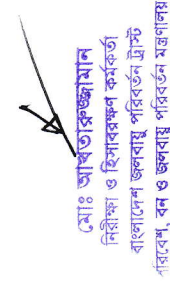 মোঃ আখতারুজ্জামান
নিরীক্ষা ও হিসাবরক্ষণ কর্মকর্তা
বাংলাদেশ জলবায়ু পরিবর্তন ট্রাস্ট
পরিবেশ, বন ও জলবায়ু পরিবর্তন মন্ত্রণালয়